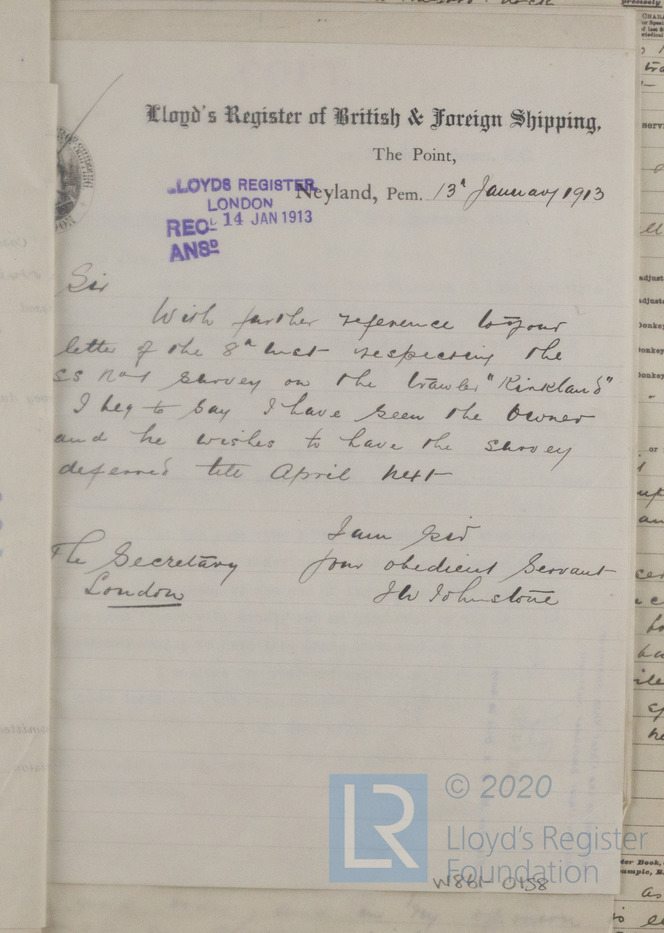 Lloyd's Register of British & Foreign Shipping,
The Point,
Neyland, Pem. 13th January 1913
LLOYDS REGISTER
LONDON
REC'D 14 JAN 1913
ANSD
Sir
With further reference to your
letter of the 8th inst respecting the
SS No 1 survey on the trawler "Kirkland"
I beg to say I have seen the owner
and he wishes to have the survey
deferred till April next
I am Sir
your obedient Servant
JW Johnstone
The Secretary
London
© 2020
LR
Lloyd's Register
Foundation
W861-0158